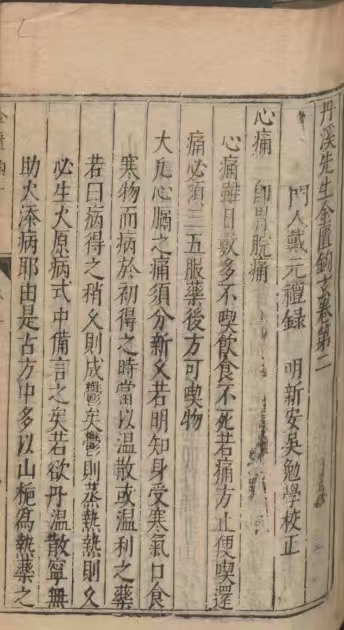 丹溪先生金匱鉤玄卷第二
門人戴元禮錄　明新安吳勉學校正
心痛　即胃脘痛
心痛雖日數多不喫飲食不死若痛方止便喫還
痛必須三五服藥後方可喫物
大凡心膈之痛須分新久若明知身受寒氣口食
寒物而病於初得之時當以溫散或溫利之藥
若曰病得之稍久則成鬱矣鬱則蒸熱熱則久
必生火原病式中備言之矣若欲丹溫散寧無
助火添病耶由是古方中多以山梔為熱藥之